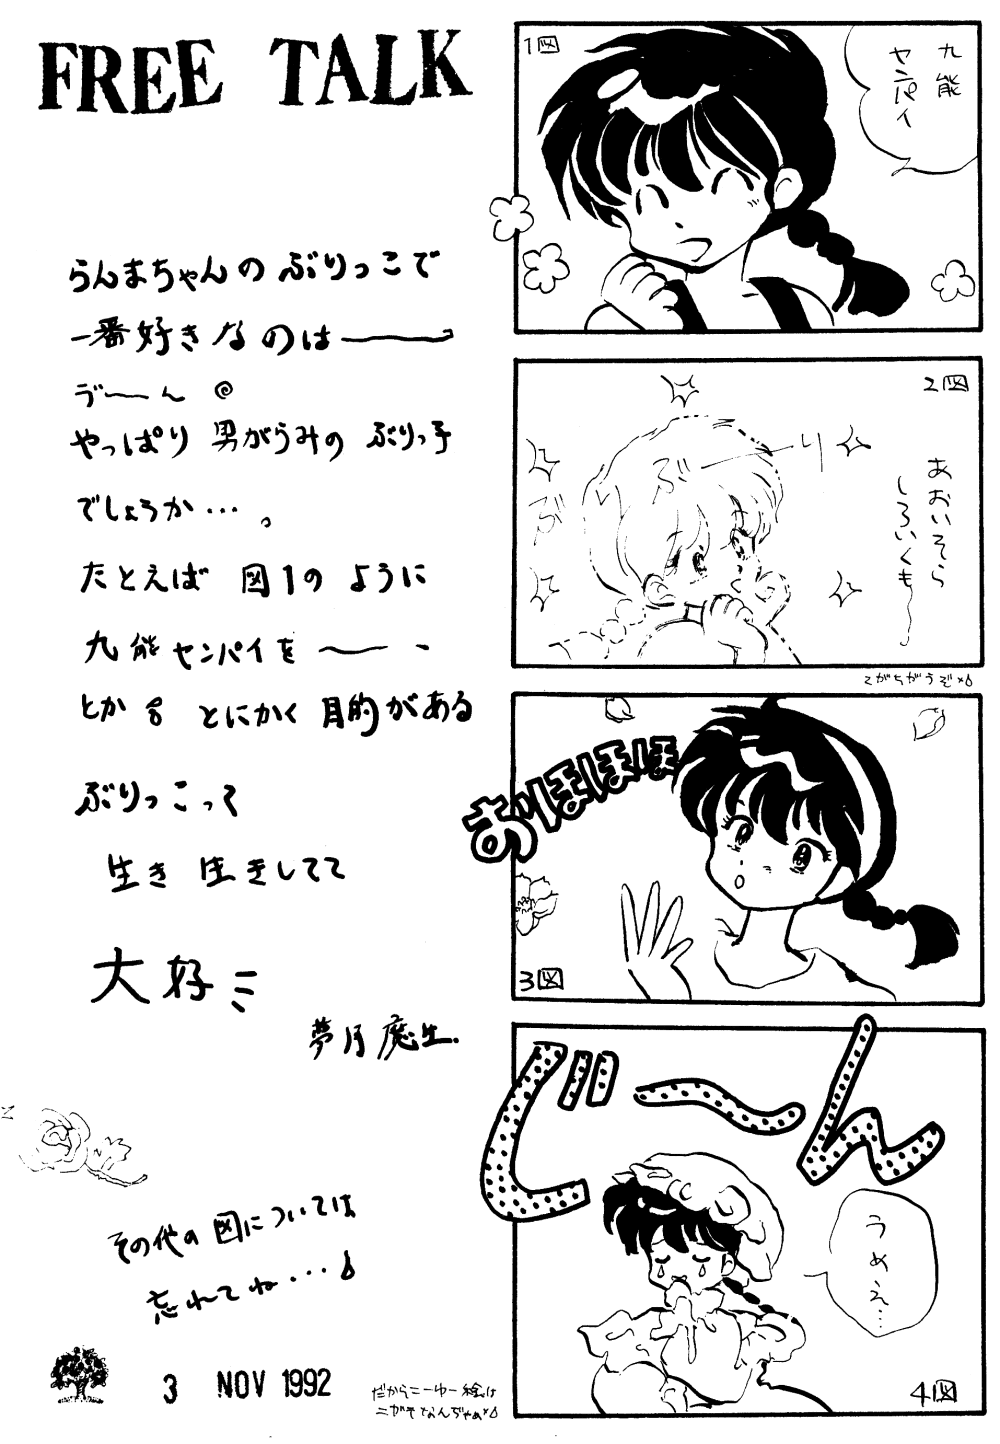 FREE TALK
らんまちゃんの ぶりっこで
一番好きなのは———っ
デ〜ん
やっぱり 男がらみの ぶりっ子
でしょうか…。
たとえば 図1の ように
九能 センパイを 〜 -
とか とにかく 目的がある
ぶりっこって
生き 生きしてて
大好
夢月 魔生.
その他の 図については
忘れてね…
3 NOV 1992
だからニーゆー絵は
ニガテなんぢゃ
1図
九能
センパイ
2図
ぶーり
ぶ
あおいそら
しろいくも〜
こがちがうぞ
おりほほほ
3図
じ〜ん
うめえ…
4図